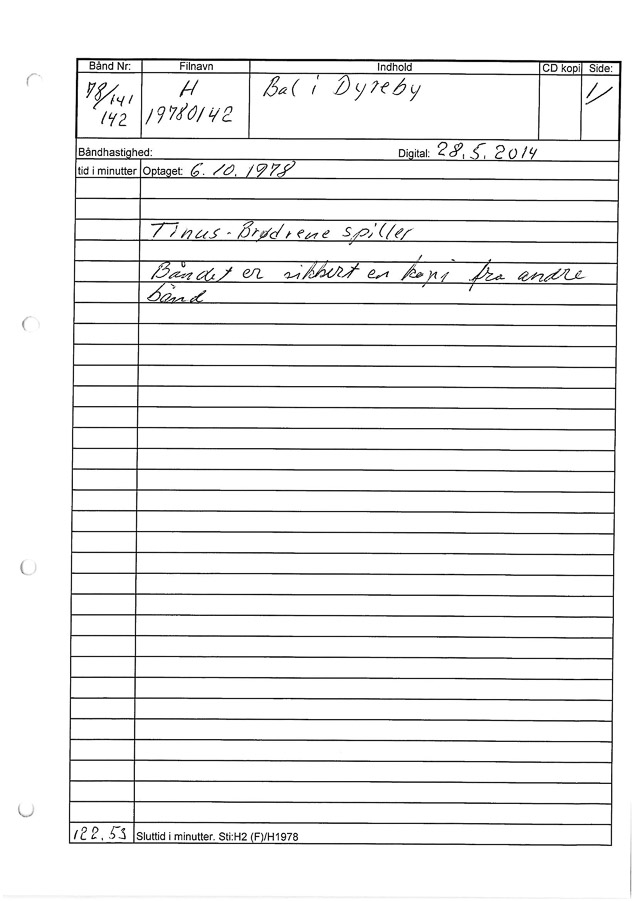 Bånd Nr: Filnavn Indhold CD kopi Side:
78/141 H Bal i Dyreby 1/
142 19780142
Båndhastighed: Digital: 28.5.2014
tid i minutter Optaget: 6.10.1978
Tinus-Brødrene spiller
Båndet er sikkert en kopi fra andre
bånd
122.53 Sluttid i minutter. Sti:H2 (F)/H1978